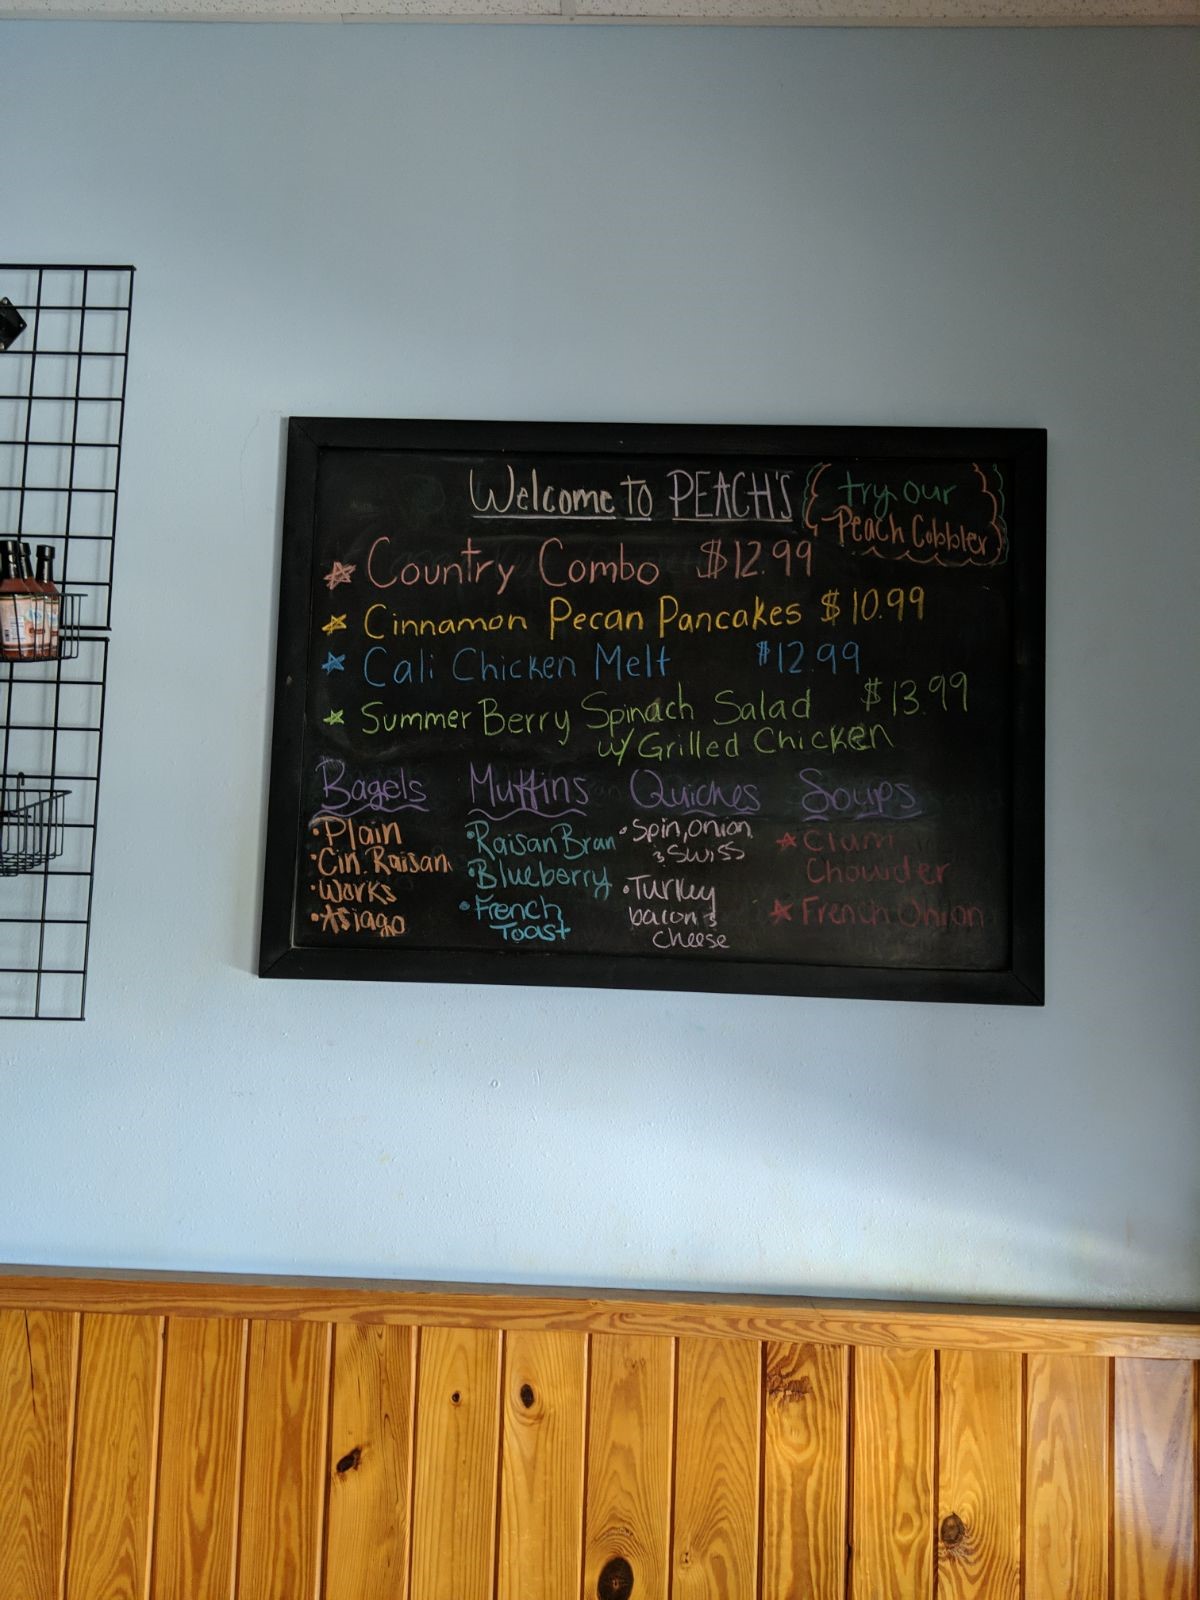 Welcome to PEACH'S
try our
Peach Cobbler
Country Combo $12.99
Cinnamon Pecan Pancakes $10.99
Cali Chicken Melt $12.99
Summer Berry Spinach Salad $13.99
w/ Grilled Chicken
Bagels
• Plain
• Cin. Raisan
• Works
• Asiago
Muffins
• Raisan Bran
• Blueberry
• French
Toast
Quiches
• Spin, Onion
& Swiss
• Turkey
bacon &
cheese
Soups
Clam
Chowder
French Onion